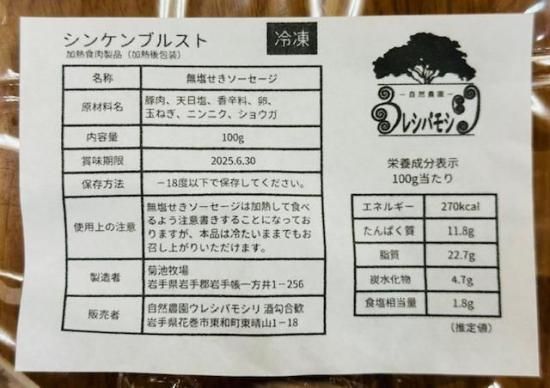 シンケンブルスト
加熱食肉製品（加熱後包装）
冷凍
名称 無塩せきソーセージ
原材料名 豚肉、天日塩、香辛料、卵、
玉ねぎ、ニンニク、ショウガ
内容量 100g
賞味期限 2025.6.30
保存方法 −18度以下で保存してください。
使用上の注意 無塩せきソーセージは加熱して食べ
るよう注意書きすることになってお
りますが、本品は冷たいままでもお
召し上がりいただけます。
製造者 菊池牧場
岩手県岩手郡岩手帳一方井1−256
販売者 自然農園ウレシパモシリ 酒勾合歓
岩手県花巻市東和町東晴山1−18
自然農園
ウレシパモシリ
栄養成分表示
100g当たり
エネルギー 270kcal
たんぱく質 11.8g
脂質 22.7g
炭水化物 4.7g
食塩相当量 1.8g
（推定値）